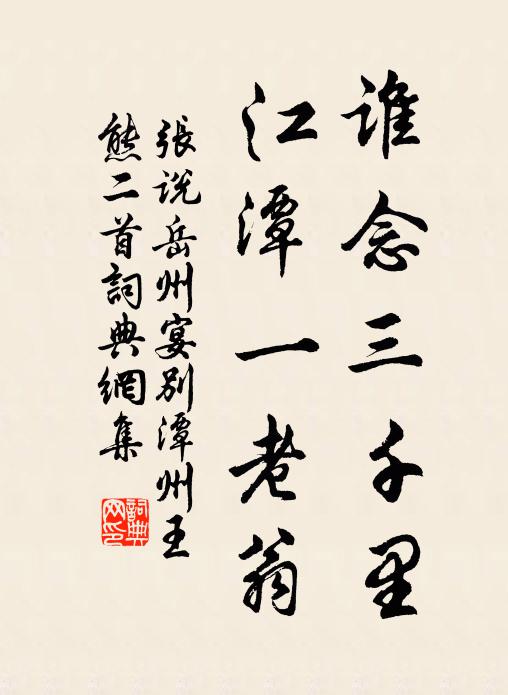 誰念三千里
江潭一老翁
張說岳州宴別潭州王
熊二首詞典網集
詞典
网印